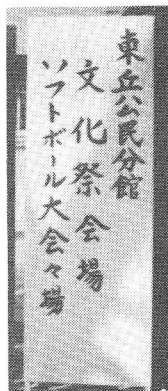 東丘公民分館
文化祭会場
ソフトボール大会々場